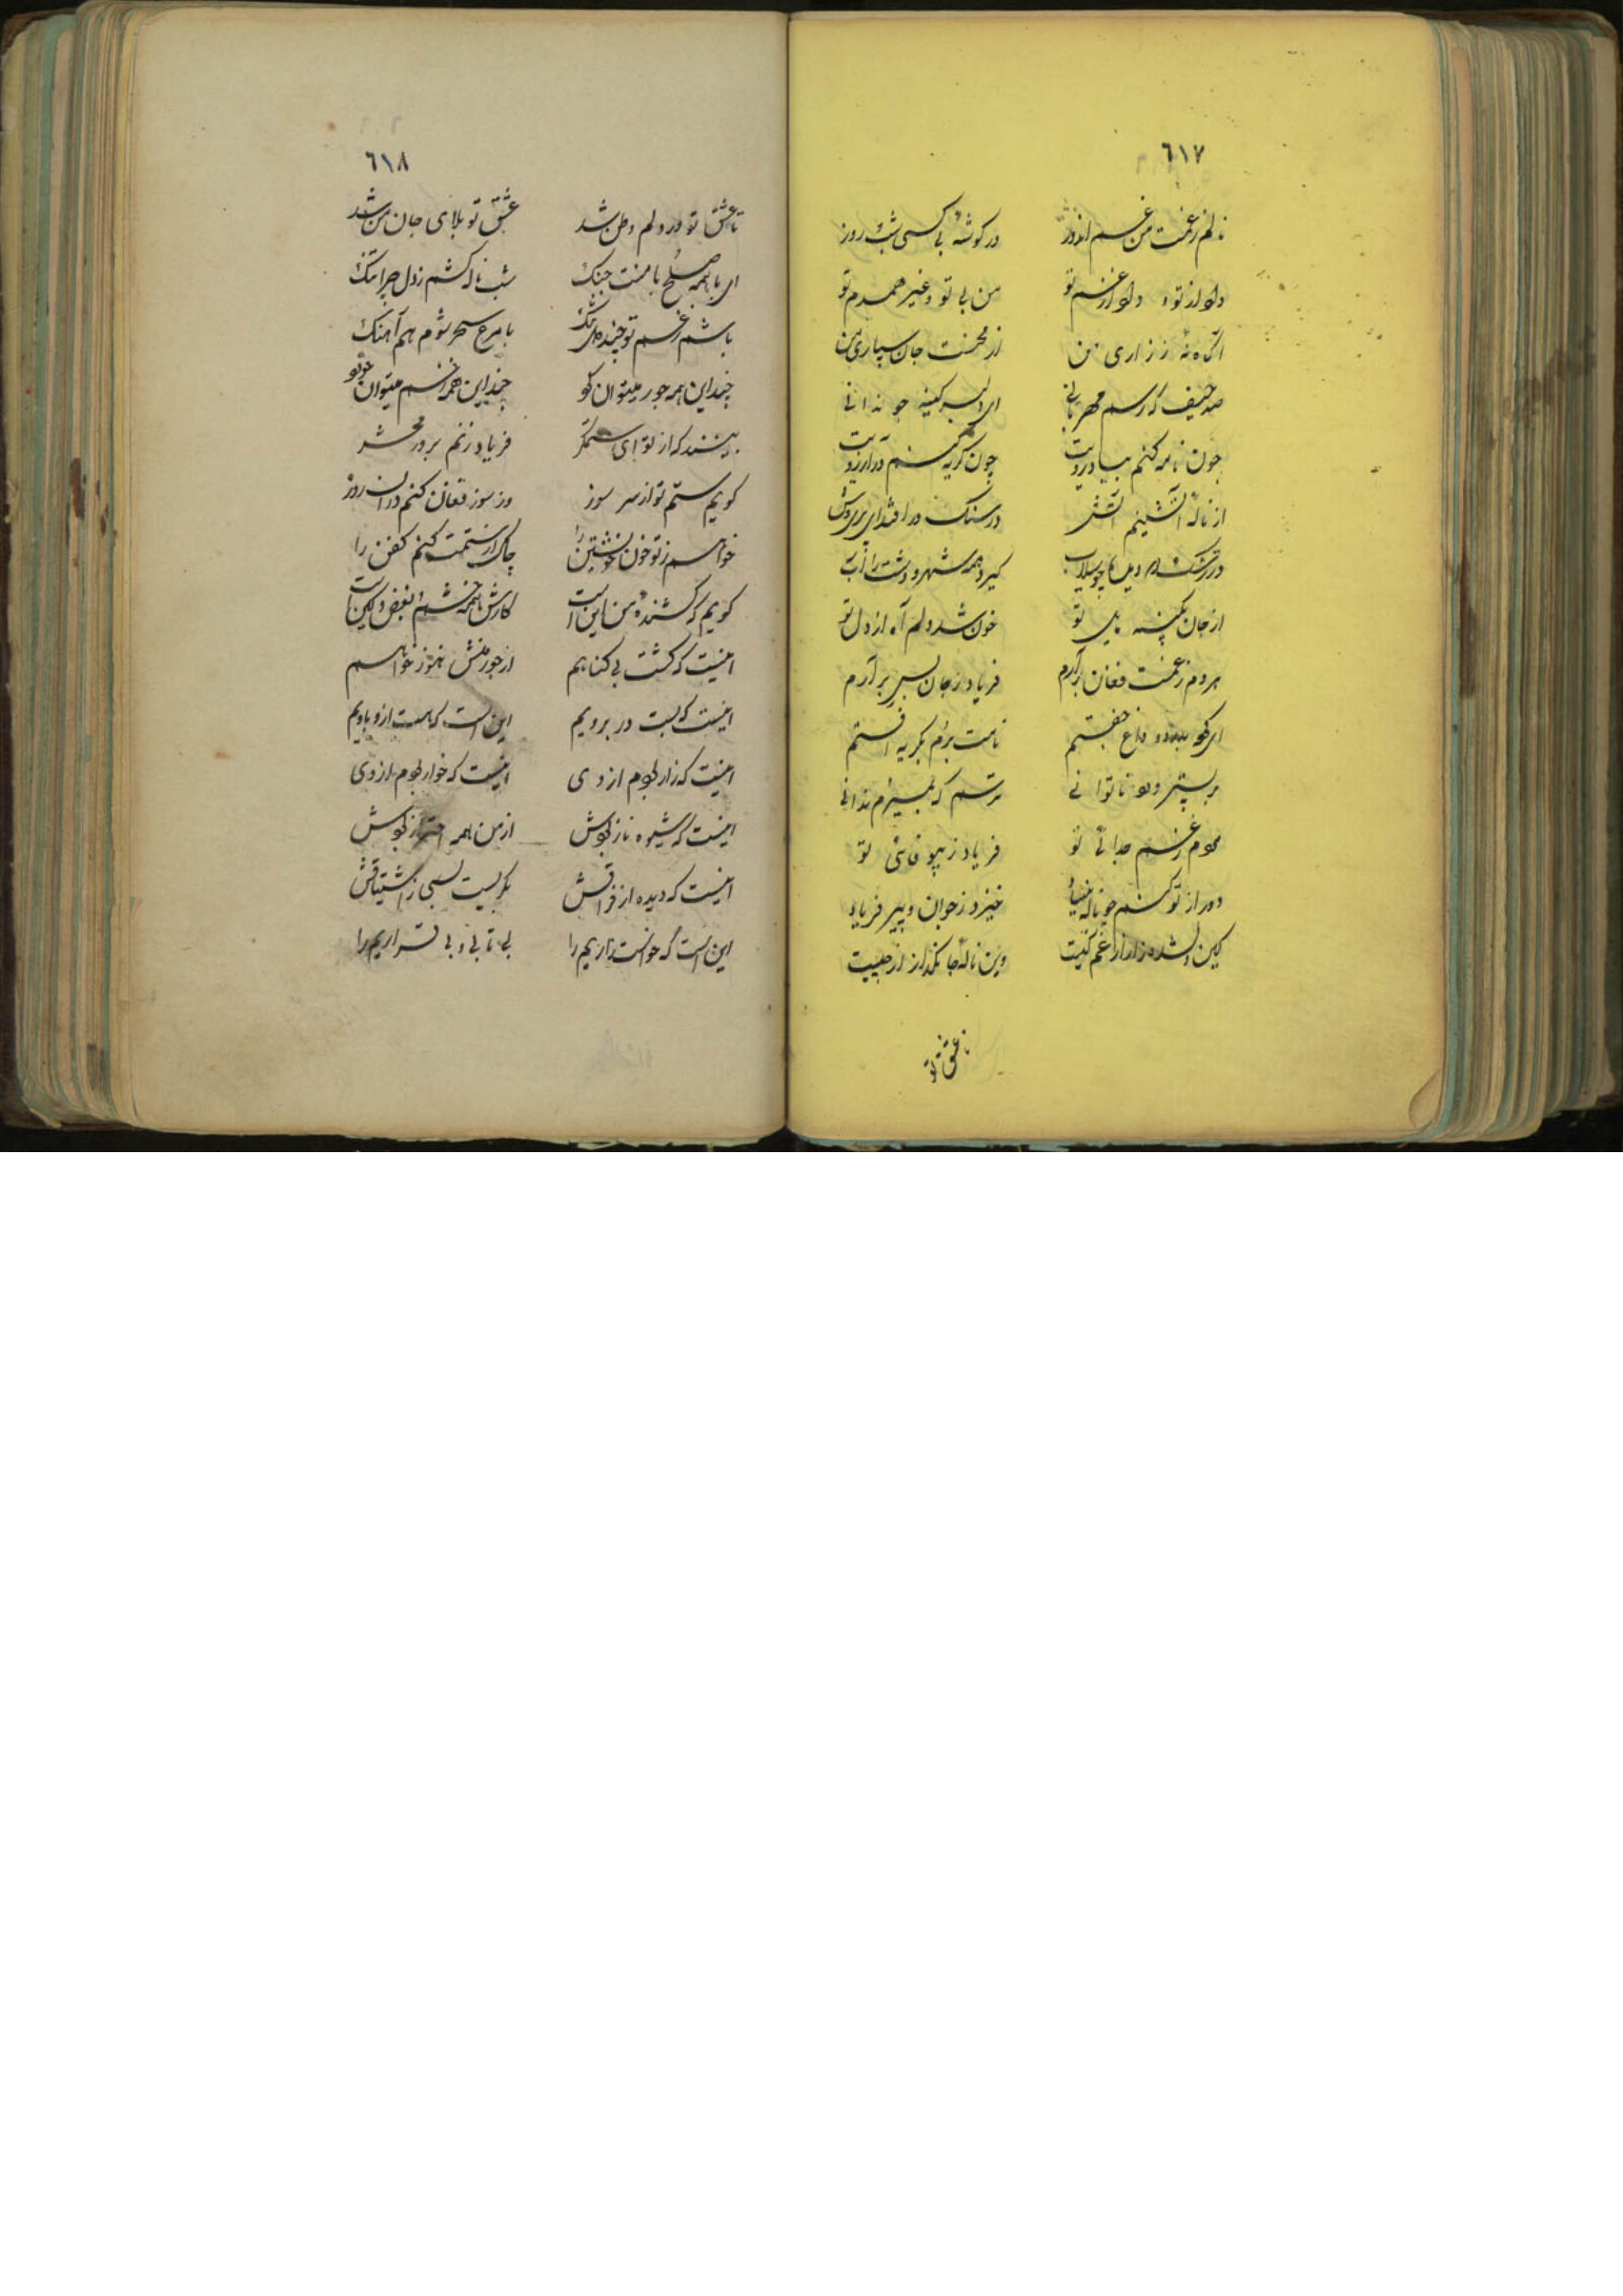 ٦١٧
نالم ز غمت من غم اندوز در کوشهٔ بی کسی شب و روز
داد از تو و داد از غم تو من بی تو و غیر همدم تو
آکاه نهٔ ز زاری من از محنت جان سپاری من
صد حیف که رسم مهربانی ای دلبر کینه جو ندانی
چون ناله کنم بیاد رویت چون کریه کنم در آرزویت
از نالهٔ آتشینم آتش در سنک در افتد ای پریوش
کیرد همه شهر و دشت را آب
از جان خون شد دلم آه از دل تو
هر دم ز غمت فغان برآرم فریاد ز جان بسر برآرم
ای داغ جفتم نامت برم بکریه افتم
بر بستر درد ناتوانی ترسم که بمیرم ندانی
مردم ز غم جدائی تو فریاد ز بیوفائی تو
دور از تو کنم چو ناله بنیاد خیزد ز جوان و پیر فریاد
کین دلشده زار از غم کیست وین نالهٔ جانکداز از چیست
تا عشق تو
٦١٨
تا عشق تو در دلم وطن شد عشق تو بلای جان من شد
ای با همه صلح با منت جنک شب ناله کشم ز دل چرا تنک
باشم ز غم تو چند دلتنک با مرغ سحر شوم هم آهنک
چند این همه جور میتوان کو چند این همه غم میتوان
بینند که از تو ای ستمکر فریاد زنم بروز محشر
کویم ستم تو از سر سوز وز سوز فغان کنم در آن روز
خواهم ز تو خون خویشتن را چاک از ستمت کنم کفن را
کویم که کشندهٔ من این است کارش همه خشم و بغض و کین است
اینست که کشت بی کناهم از جور منش هنوز خواهم
اینست که بست در برویم این است که هست ازو
اینست که زار بودم از وی اینست که خوار بودم از وی
اینست که شیوه ناز بودش از من همه احتراز بودش
اینست که دیده از فراقش بکریست بسی ز اشتیاقش
این است که خواست زاریم را بی تابی و بی قراریم را